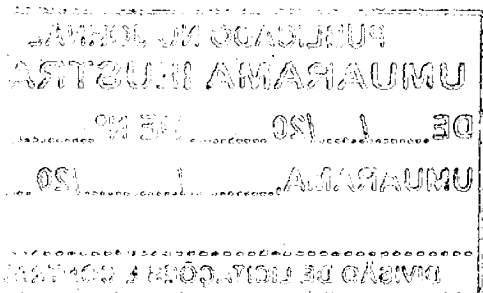 PUBLICADO NO JORNAL
UMUARAMA ILUSTRA
DE / /20 DE Nº
UMUARAMA, / /20
DIVISÃO DE LICITAÇÕES E CONTRA